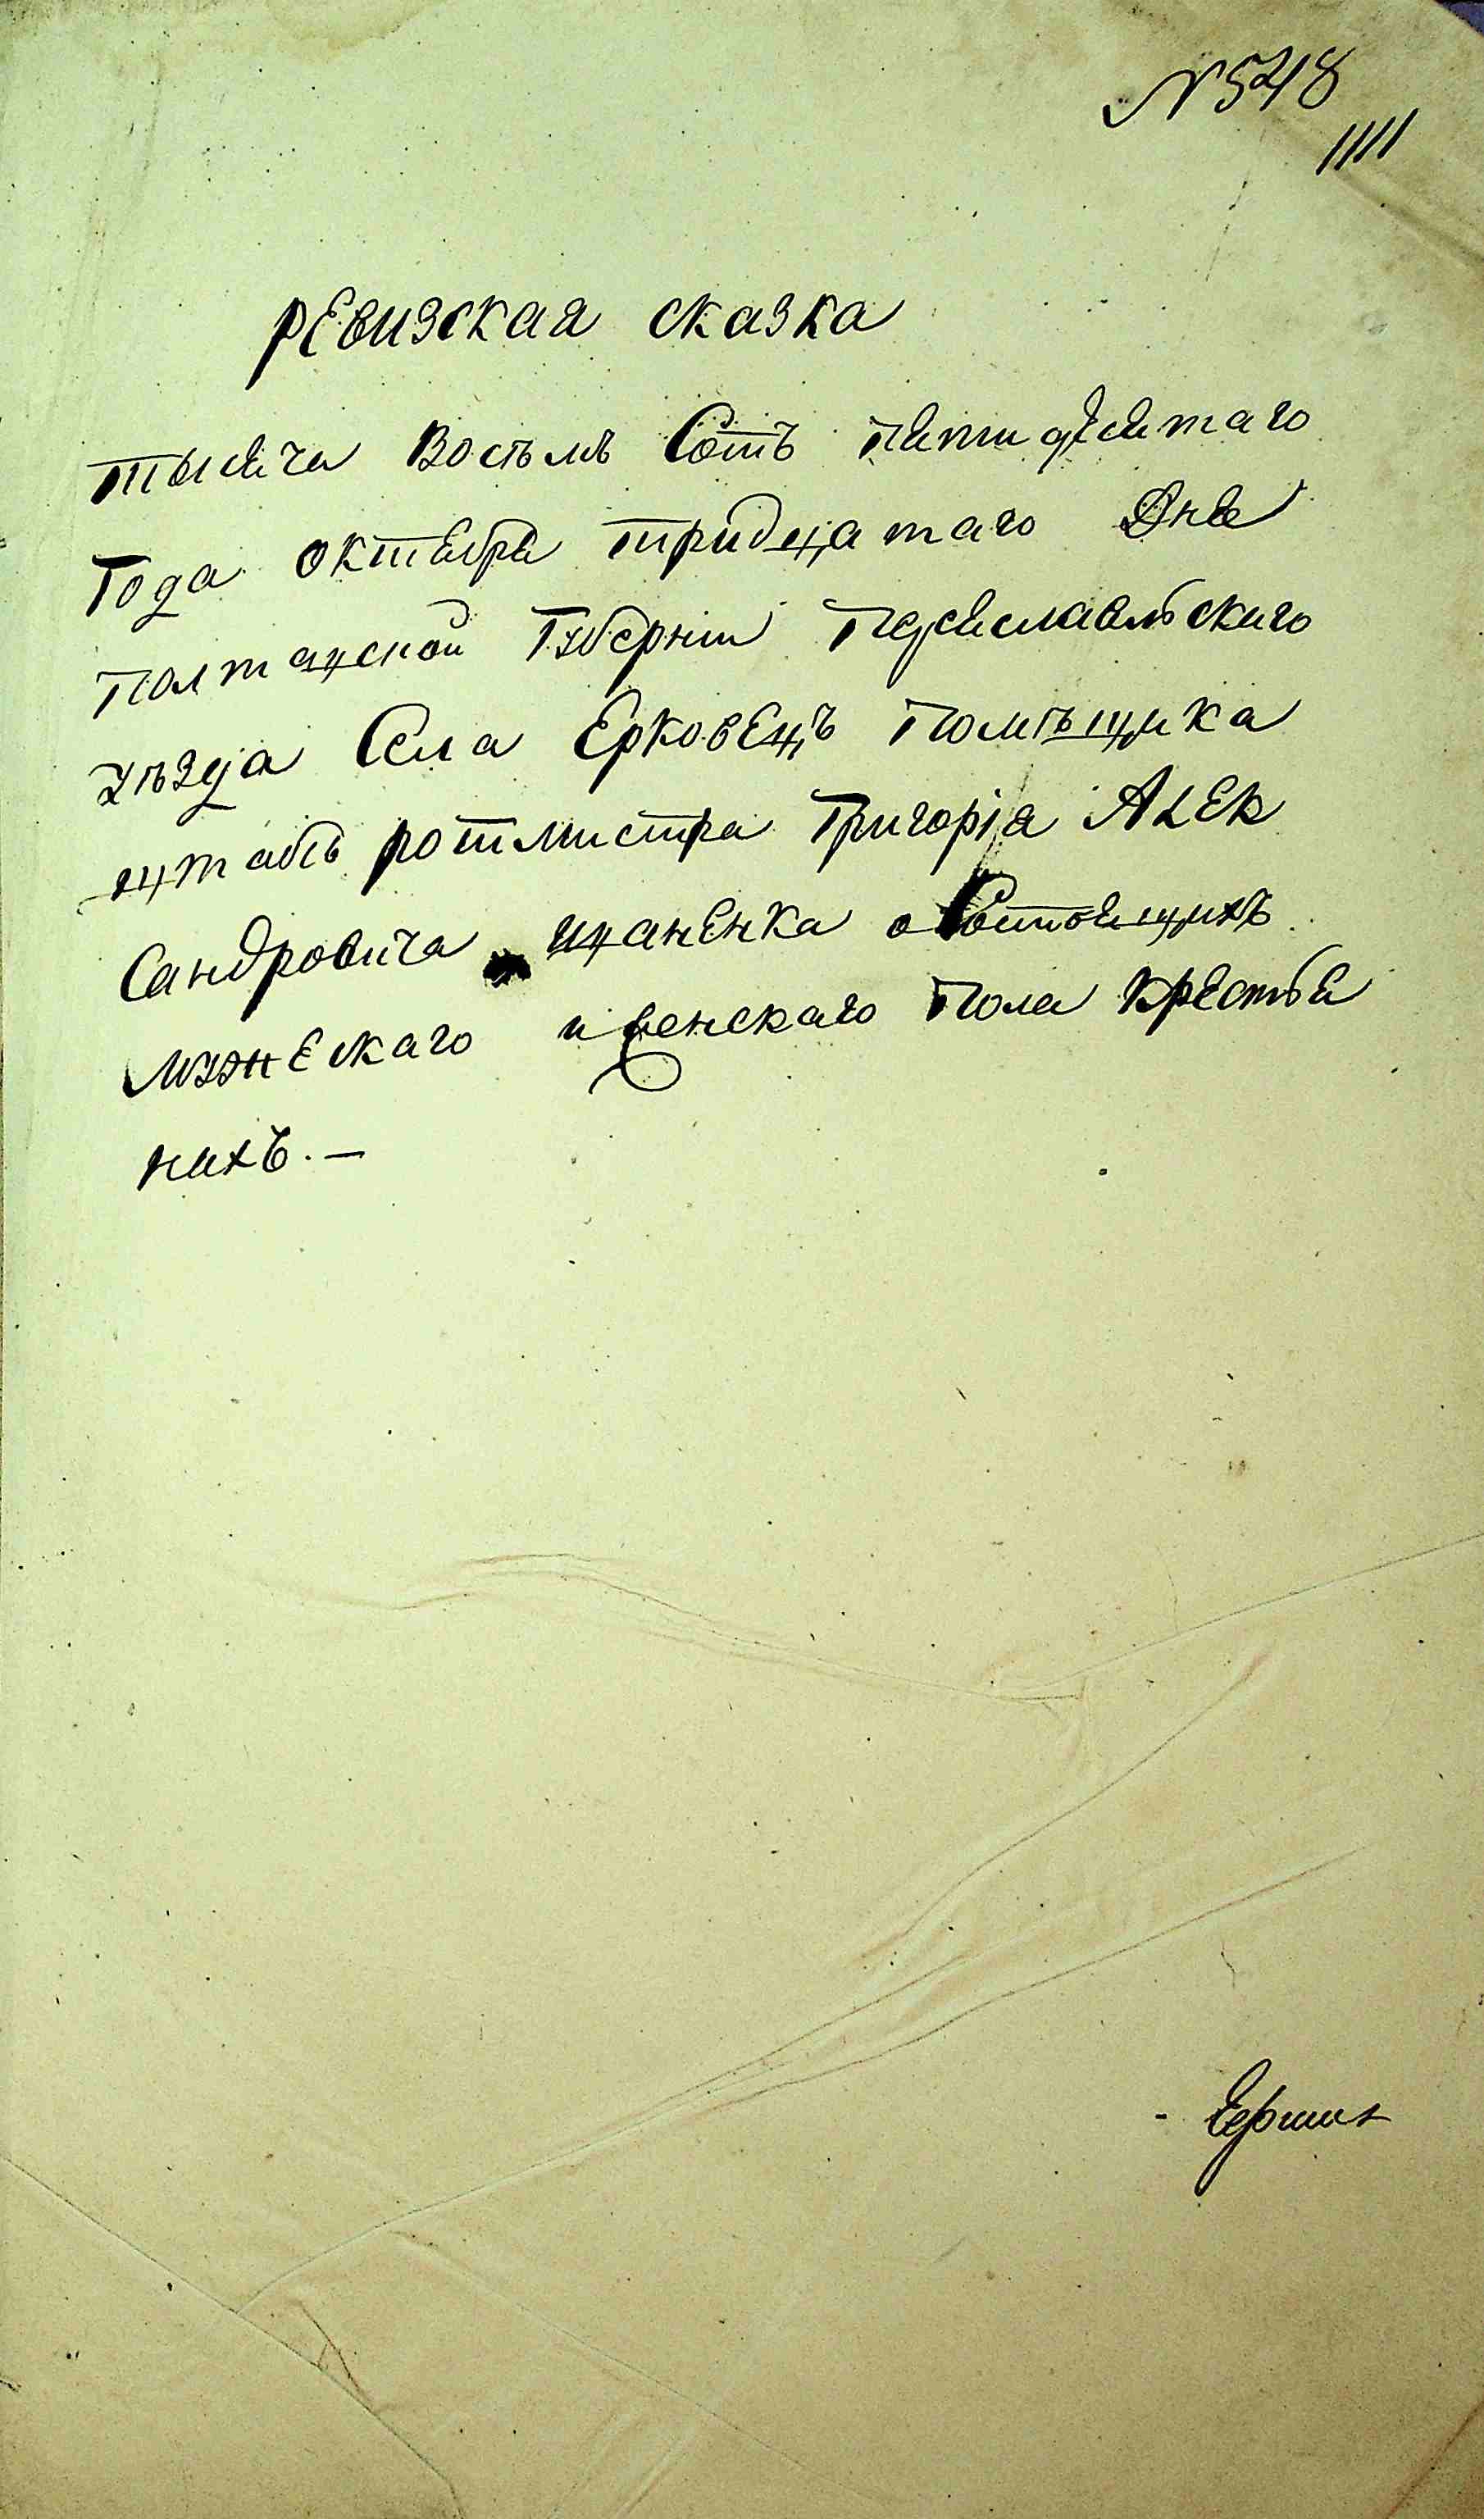 № 548
1111
Ревизская сказка
тысяча Восемъ Сотъ пятидесятаго
Года октября тридцатаго Дня
Полтавской Губерніи Переяславльскаго
уѣзда Села Ерковецъ Помѣщика
штабъ ротмистра Григорія Алек
Сандровича Иваненка о Состоящихъ
мужескаго и женскаго Пола крестья
нахъ. —